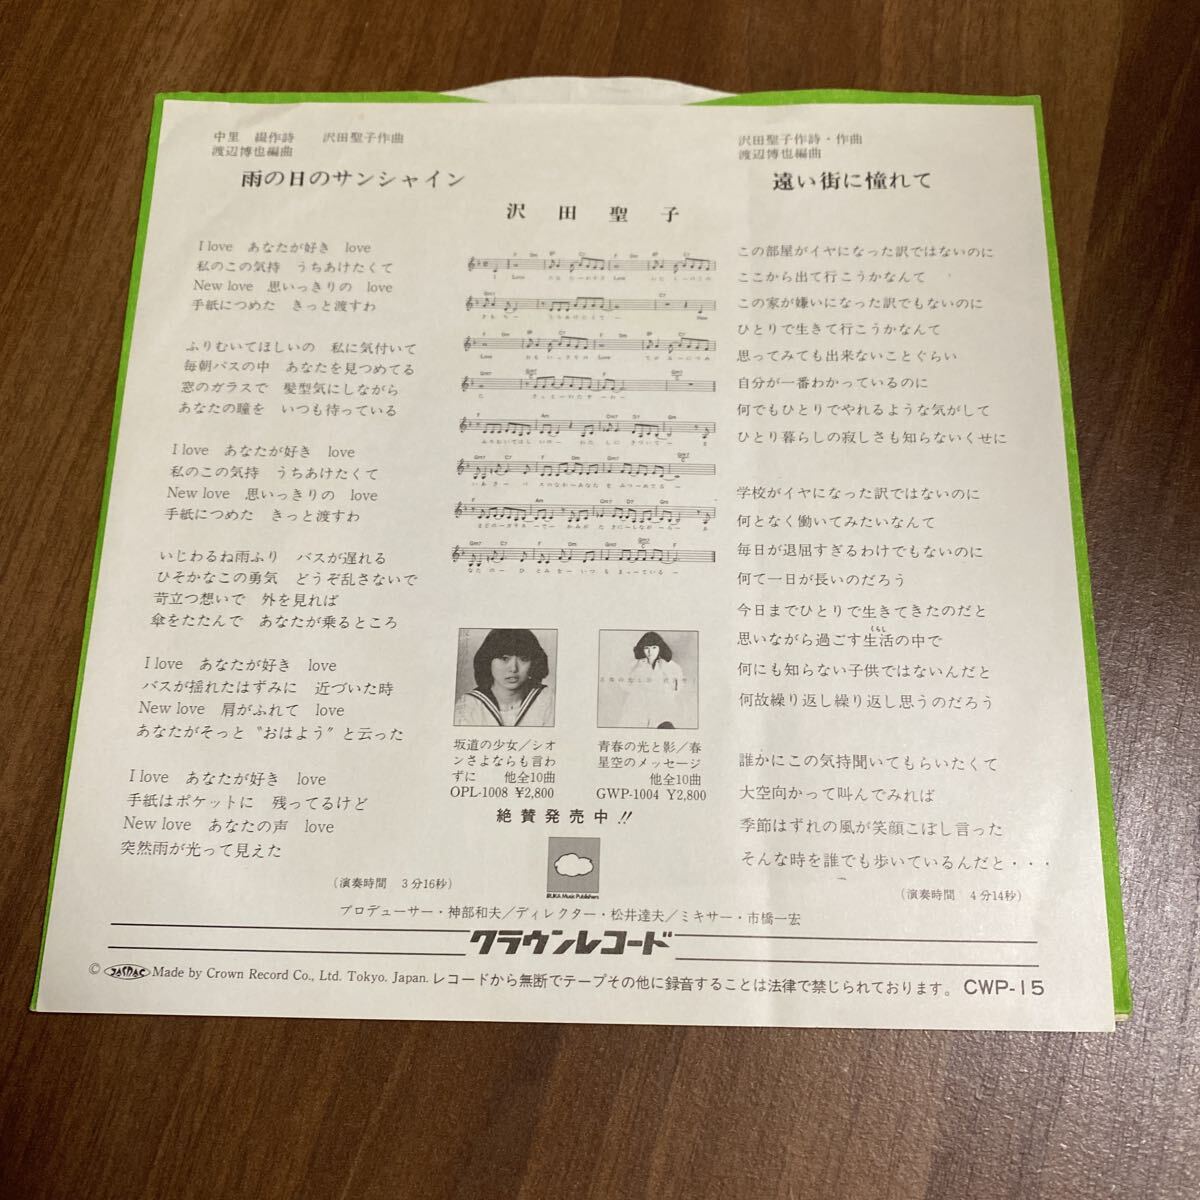 中里　綴作詩　　沢田聖子作曲
渡辺博也編曲
雨の日のサンシャイン
沢田聖子作詩・作曲
渡辺博也編曲
遠い街に憧れて
沢田聖子
I love　あなたが好き　love
私のこの気持　うちあけたくて
New love　思いっきりの　love
手紙につめた　きっと渡すわ
ふりむいてほしいの　私に気付いて
毎朝バスの中　あなたを見つめてる
窓のガラスで　髪型気にしながら
あなたの瞳を　いつも待っている
I love　あなたが好き　love
私のこの気持　うちあけたくて
New love　思いっきりの　love
手紙につめた　きっと渡すわ
いじわるね雨ふり　バスが遅れる
ひそかなこの勇気　どうぞ乱さないで
苛立つ想いで　外を見れば
傘をたたんで　あなたが乗るところ
I love　あなたが好き　love
バスが揺れたはずみに　近づいた時
New love　肩がふれて　love
あなたがそっと〝おはよう〟と云った
I love　あなたが好き　love
手紙はポケットに　残ってるけど
New love　あなたの声　love
突然雨が光って見えた
（演奏時間　3分16秒）
坂道の少女／シオ
ンさよならも言わ
ずに　他全10曲
OPL-1008 ¥2,800
青春の光と影／春
星空のメッセージ
他全10曲
GWP-1004 ¥2,800
絶賛発売中!!
IRUKA Music Publishers
この部屋がイヤになった訳ではないのに
ここから出て行こうかなんて
この家が嫌いになった訳でもないのに
ひとりで生きて行こうかなんて
思ってみても出来ないことぐらい
自分が一番わかっているのに
何でもひとりでやれるような気がして
ひとり暮らしの寂しさも知らないくせに
学校がイヤになった訳ではないのに
何となく働いてみたいなんて
毎日が退屈すぎるわけでもないのに
何て一日が長いのだろう
今日までひとりで生きてきたのだと
くらし
思いながら過ごす生活の中で
何にも知らない子供ではないんだと
何故繰り返し繰り返し思うのだろう
誰かにこの気持聞いてもらいたくて
大空向かって叫んでみれば
季節はずれの風が笑顔こぼし言った
そんな時を誰でも歩いているんだと・・・
（演奏時間　4分14秒）
プロデューサー・神部和夫／ディレクター・松井達夫／ミキサー・市橋一宏
クラウンレコード
© JASRAC Made by Crown Record Co., Ltd. Tokyo. Japan. レコードから無断でテープその他に録音することは法律で禁じられております。 CWP-15